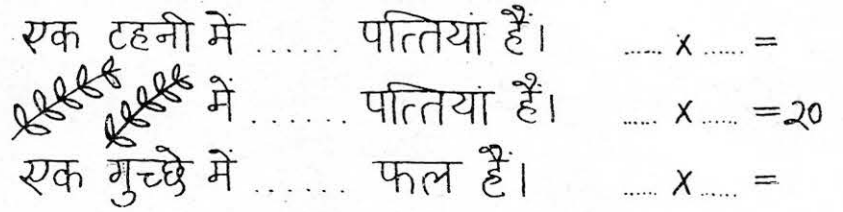 एक टहनी में ...... पत्तियां हैं। ...... x ...... =
में ...... पत्तियां हैं। ...... x ...... = २०
एक गुच्छे में ...... फल हैं। ...... x ...... =